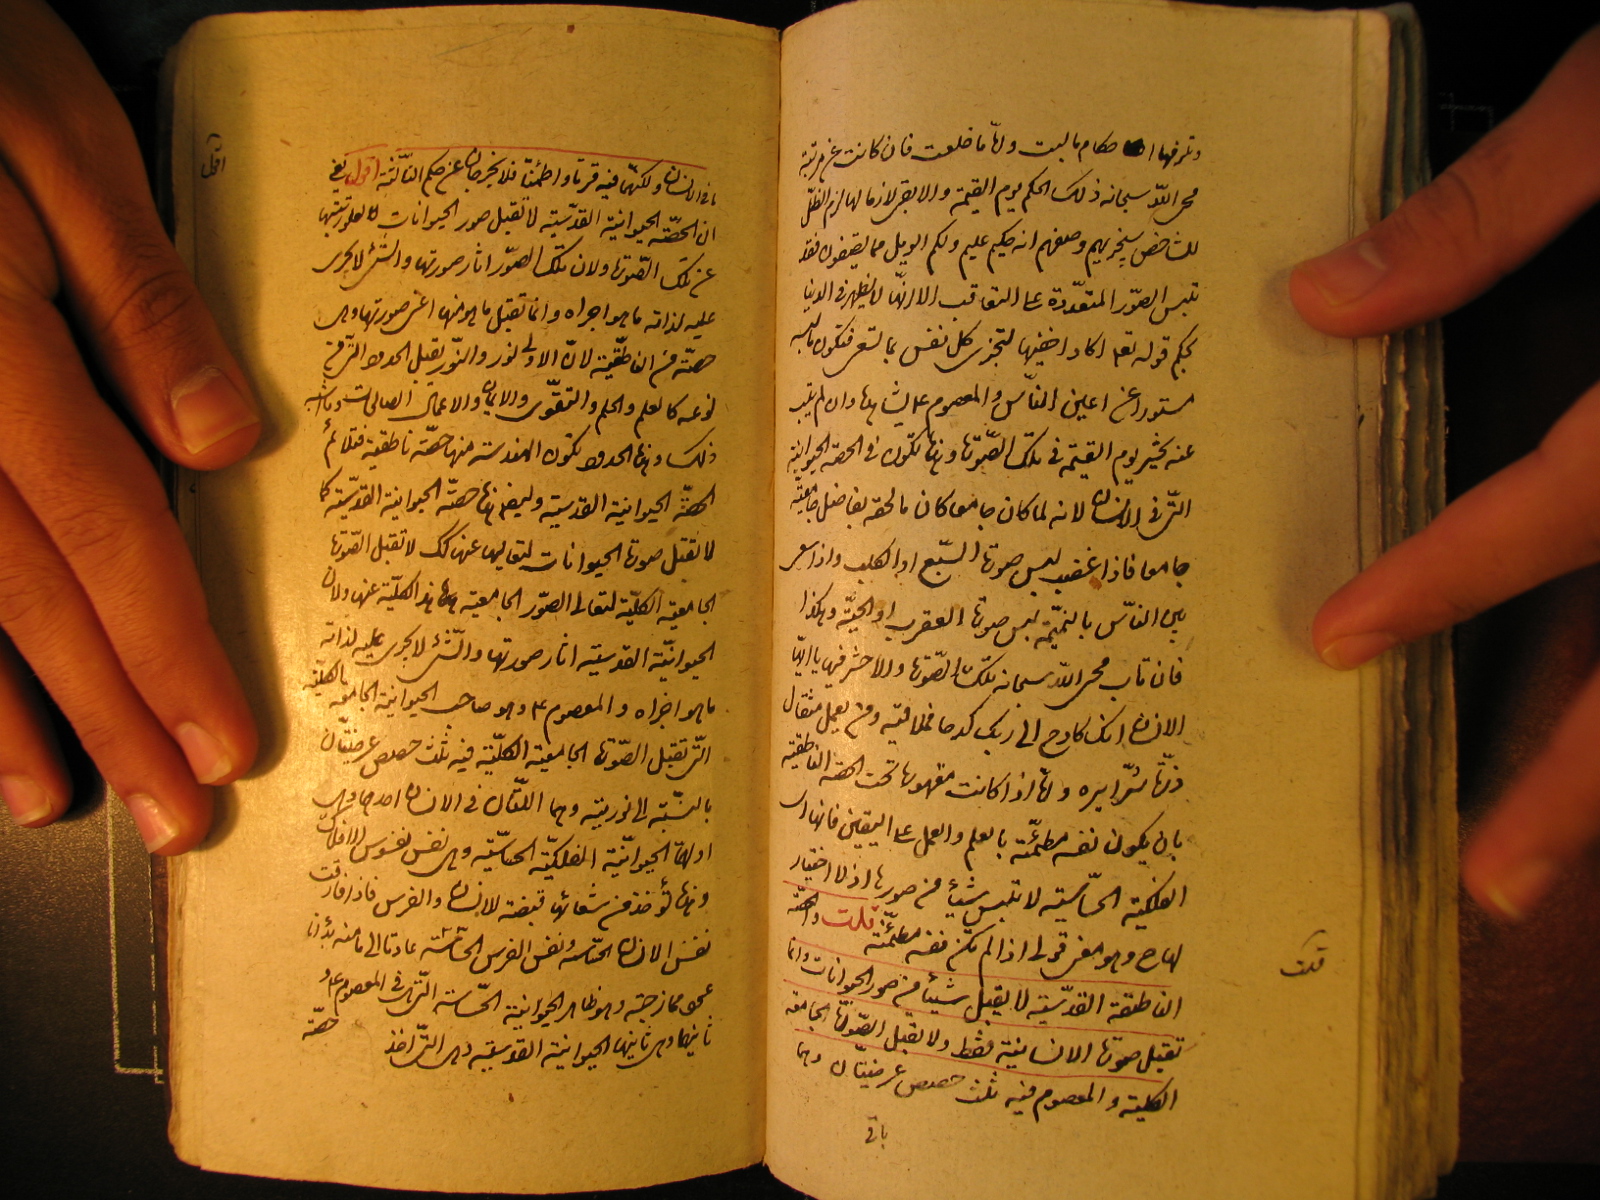 وتلوفها احكام ما لبست ولها ما خلعت فان كانت غير مرتبة
محى الله سبحانه ذلك الحكم يوم القيمة والا بقى لازما لها لزم الظل
للشاخص سيجزيهم وصفهم انه حكيم عليم ولكم الويل مما تصفون فقد
تلبس الصور المتعددة على التعاقب الا انها لا يظهر في الدنيا
بحكم قوله تعالى اكاد اخفيها لتجزى كل نفس بما تسعى فتكون
مستورا عن اعين الناس والمعصوم ع يشاهدها وان لم يتب
عنه يحشر يوم القيمة في تلك الصورة وهذا تكون في الحصة الحيوانية
التي في الانسان لانه لما كان جامعا كان ما لحقه بفاضل جامعيته
جامعا فاذا غضب لبس صورة السبع او الكلب واذا سعى
بين الناس بالنميمة لبس صورة العقرب او الحية وهكذا
فان تاب محى الله سبحانه تلك الصورة والا حشر فيها يا ايها
الانسان انك كادح الى ربك كدحا فملاقيه ومن يعمل مثقال
ذرة شرا يره ولهذا اذا كانت مقهورة تحت الحصة الناطقية
بان يكون نفسه مطمئنة بالعلم والعمل على اليقين فانها اي
الفلكية الحساسية لا تلبس شيئا من صورها اذ لا اختيار
لها ح وهو معنى قولي اذا لم تكن نفسه مطمئنة قلت والحصة
الناطقة القدسية لا يقبل شيئا من صور الحيوانات وانما
تقبل صورة الانسانية فقط ولا تقبل الصورة الجامعة
الكلية والمعصوم فيه ثلث حصص عرضيتان وهما
باقي
قلت
ما في الانسان ولكنهما فيه قرتا واطمئنتا فلا يخرجان عن حكم الثالثة اقول يعني
ان الحصة الحيوانية القدسية لا تقبل صور الحيوانات لعلو رتبتها
عن تلك الصورة ولان تلك الصور اثار صورتها والشئ لا يجرى
عليه لذاته ما هو اجراه وانما تقبل ما هو منها اعني صورتها وهى
حصة من الناطقية لان الاولى نور والنور يقبل الحدود التي من
نوعه كالعلم والحلم والتقوى والايمان والاعمال الصالحات وما اشبه
ذلك وهذا الحدود تكون الهندسة منها حصة ناطقية فتلائم
الحصة الحيوانية القدسية وليعلم هذا حصة الحيوانية القدسية كما
لا تقبل صورة الحيوانات لتعاليها عنها كك لا تقبل الصورة
الجامعية الكلية لتعالى الصور الجامعية هذه الكلية عنها ولان
الحيوانية القدسية اثار صورتها والشئ لا يجرى عليه لذاته
ما هو اجراه والمعصوم ع وهو صاحب الحيوانية الجامعة الكلية
التي تقبل الصورة الجامعية الكلية فيه ثلث حصص عرضيتان
بالنسبة الى نوريته وهما اللتان في الانسان احدهما وهى
اولهما الحيوانية الفلكية الحساسية وهى نفس نفوس الافلاك
وهذا تؤخذ من شعاعها قبضة للانسان والفرس فاذا فارقت
نفس الانسان الحساسة ونفس الفرس الحساسة عادتا الى ما منه بدأتا
عود ممازجة وهو ظاهر الحيوانية الحساسة التي في المعصوم ع و
ثانيهما وهى ثانيها الحيوانية القدسية وهى التي اخذ
حصة
اقول